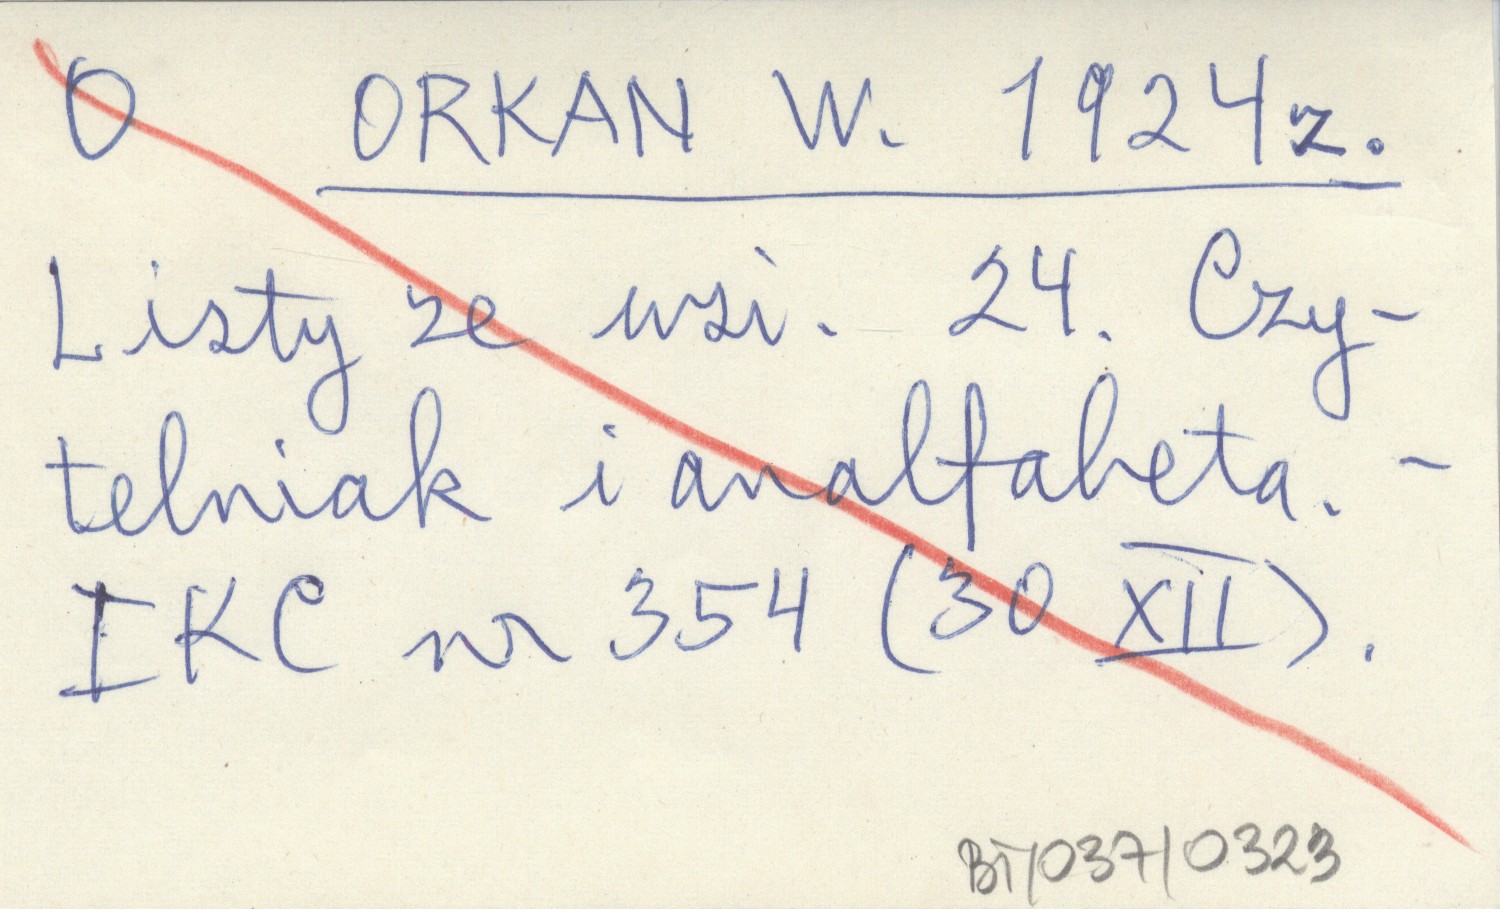 O ORKAN W. 1924 z.
Listy ze wsi. 24. Czy-
telniak i analfabeta. -
IKC nr 354 (30 XII).
BT/037/0323